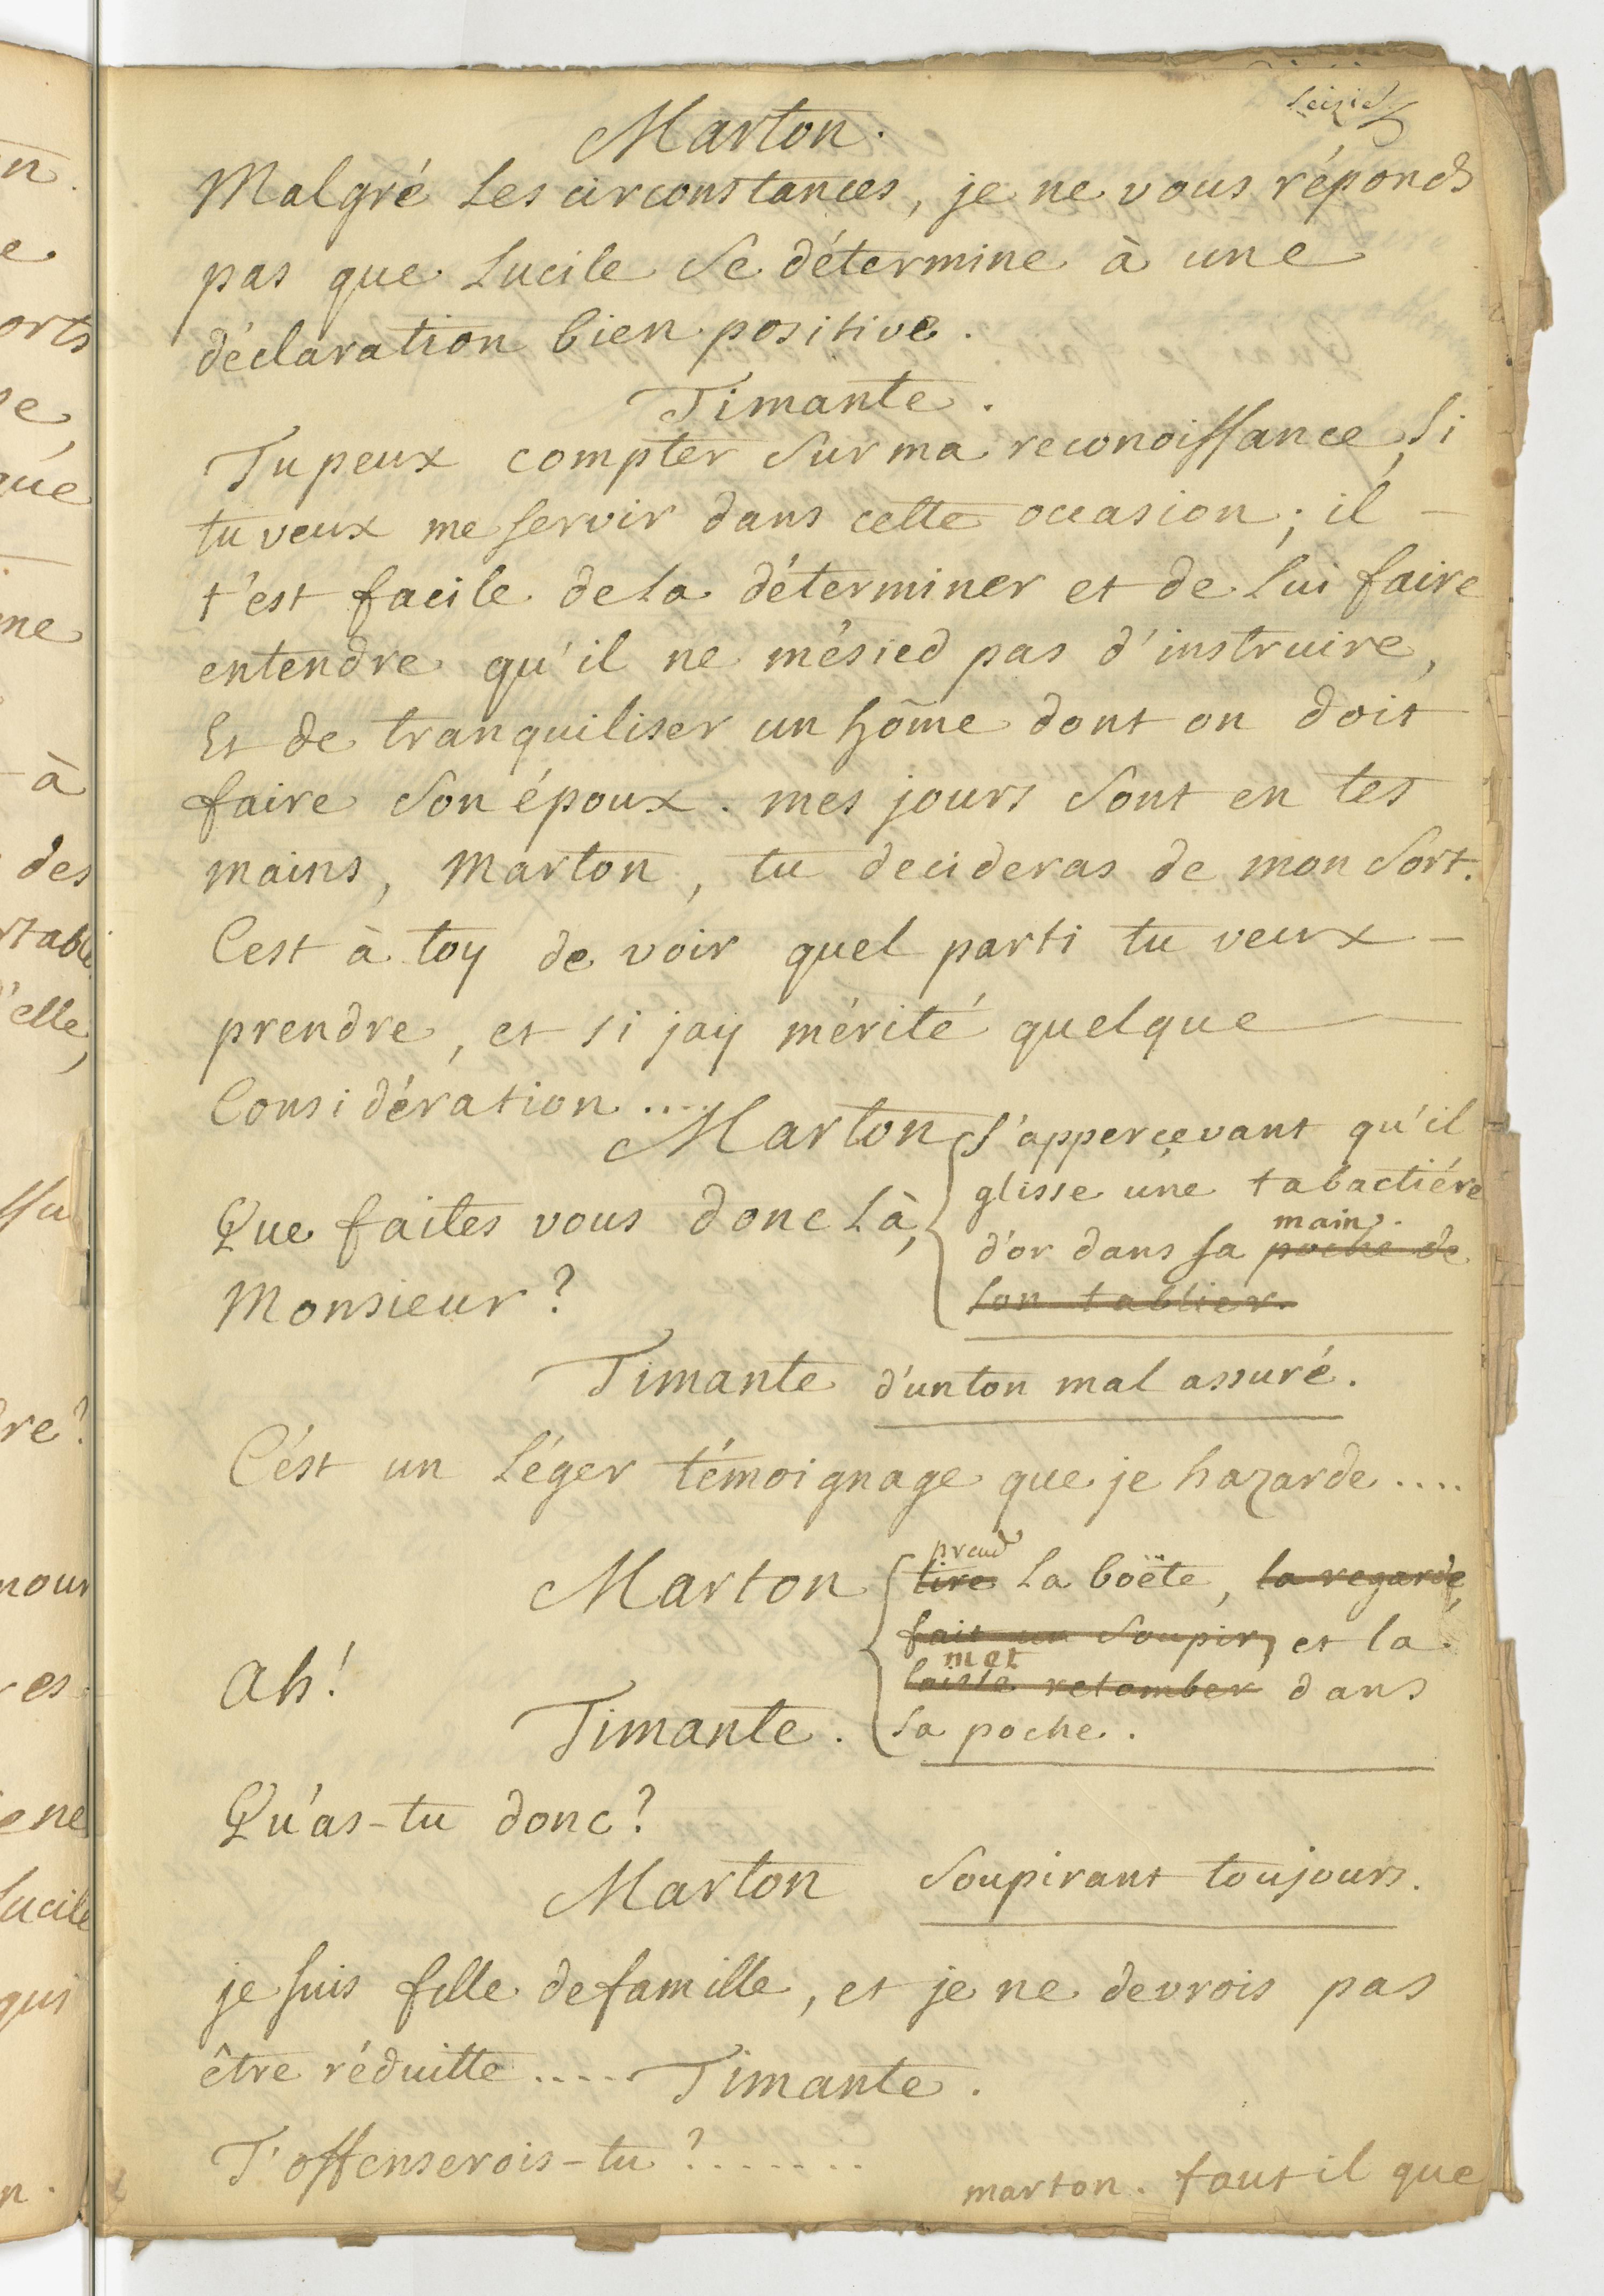 Marton.
Malgré Les circonstances, je ne vous réponds
pas que Lucile Se détermine à une
déclaration bien positive.
Timante.
Tu peux compter Sur ma reconoissance, Si
tu veux me servir dans cette occasion; il -
t'est facile de La déterminer et de Lui faire
entendre qu'il ne mésied pas d'instruire,
Et de tranquiliser un hôme dont on doit
faire Son époux. mes jours Sont en tes
mains, Marton, tu decideras de mon Sort.
C'est à toy de voir quel parti tu veux -
prendre, et si jay mérité quelque -
Considération....
Marton s'appercevant qu'il
glisse une tabactiére
Que faites vous donc Là,
main.
d'or dans sa poche de
Monsieur?
son tablier.
Timante d'un ton mal assuré.
C'ést un Léger témoignage que je hazarde....
prend
Marton tire La boëte, la regarde,
fait un Soupir, et la
Ah!
met
laisse retomber dans
Timante. Sa poche.
Qu'as-tu donc?
Marton Soupirant toujours.
je suis fille de famille, et je ne devrois pas
être réduitte.....
Timante.
T'offenserois-tu?.......
marton. faut il que